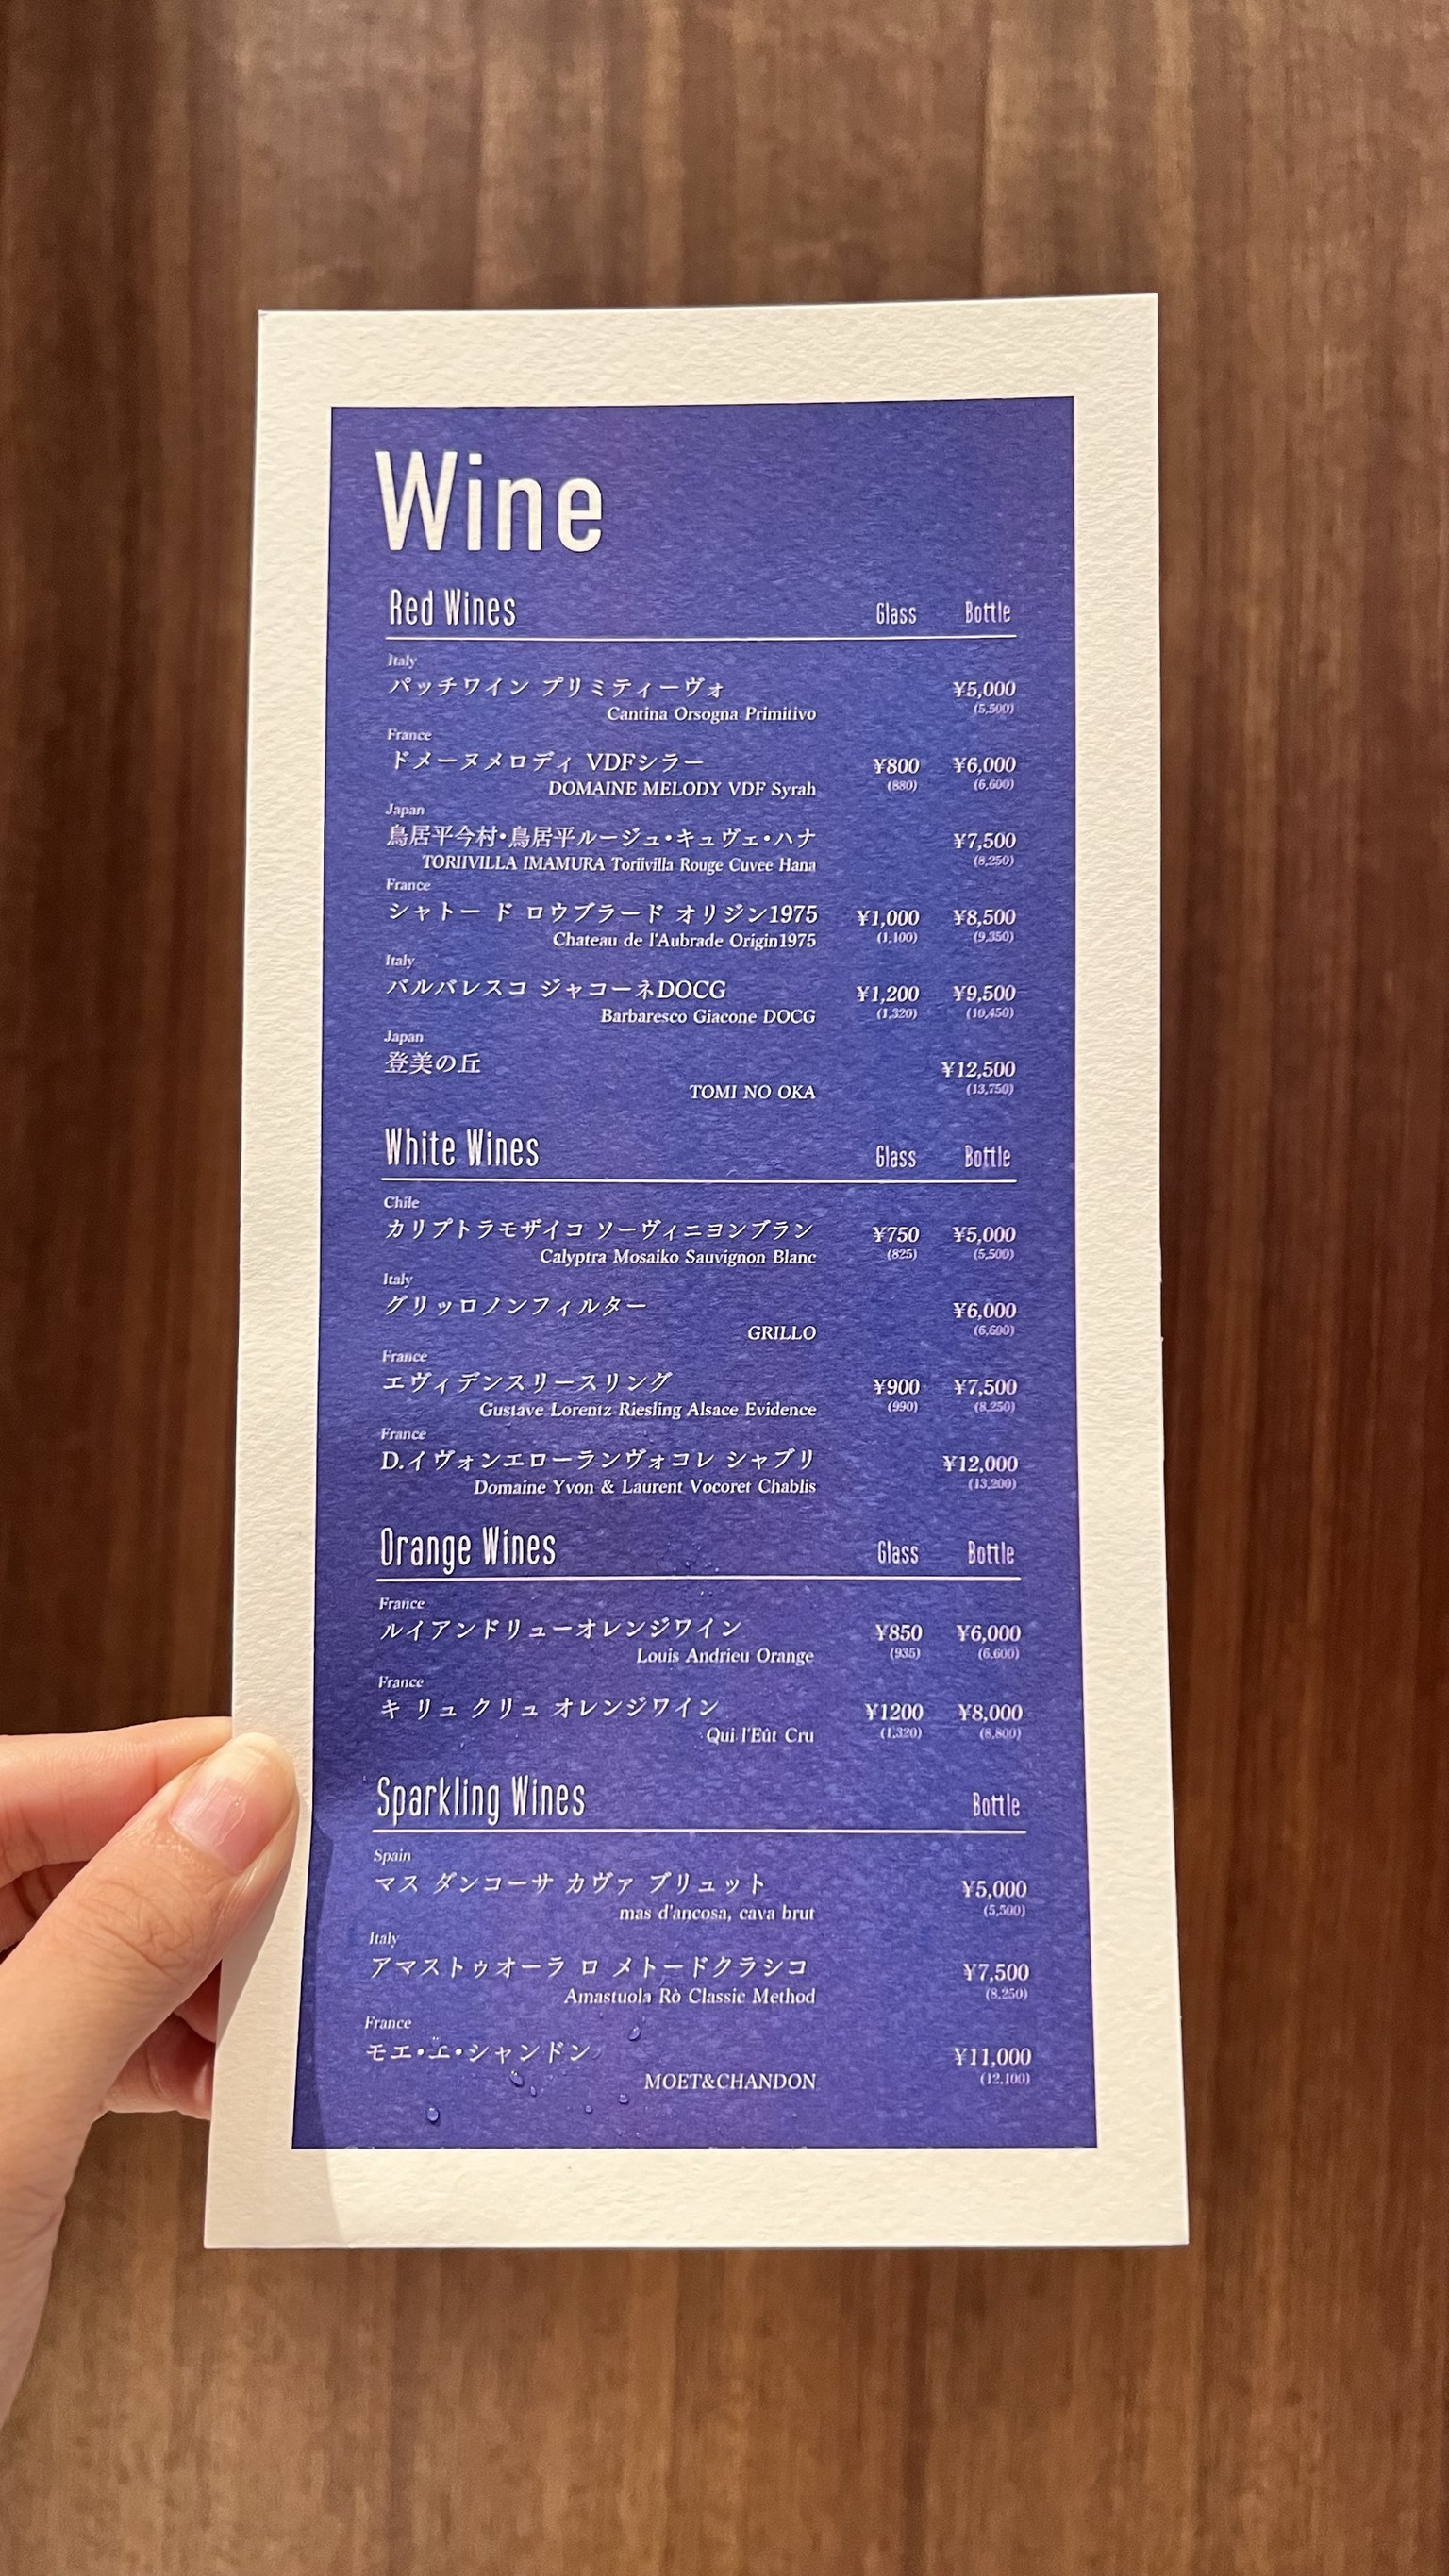 Wine
Red Wines Glass Bottle
Italy
パッチワイン プリミティーヴォ ¥5,000
Cantina Orsogna Primitivo (5,500)
France
ドメーヌメロディ VDFシラー ¥800 ¥6,000
DOMAINE MELODY VDF Syrah (880) (6,600)
Japan
鳥居平今村・鳥居平ルージュ・キュヴェ・ハナ ¥7,500
TORIIVILLA IMAMURA Toriivilla Rouge Cuvee Hana (8,250)
France
シャトー ド ロウブラード オリジン1975 ¥1,000 ¥8,500
Chateau de l'Aubrade Origin1975 (1,100) (9,350)
Italy
バルバレスコ ジャコーネDOCG ¥1,200 ¥9,500
Barbaresco Giacone DOCG (1,320) (10,450)
Japan
登美の丘 ¥12,500
TOMI NO OKA (13,750)
White Wines Glass Bottle
Chile
カリプトラモザイコ ソーヴィニヨンブラン ¥750 ¥5,000
Calyptra Mosaiko Sauvignon Blanc (825) (5,500)
Italy
グリッロノンフィルター ¥6,000
GRILLO (6,600)
France
エヴィデンスリースリング ¥900 ¥7,500
Gustave Lorentz Riesling Alsace Evidence (990) (8,250)
France
D.イヴォンエローランヴォコレ シャブリ ¥12,000
Domaine Yvon & Laurent Vocoret Chablis (13,200)
Orange Wines Glass Bottle
France
ルイアンドリューオレンジワイン ¥850 ¥6,000
Louis Andrieu Orange (935) (6,600)
France
キ リュ クリュ オレンジワイン ¥1200 ¥8,000
Qui l'Eût Cru (1,320) (8,800)
Sparkling Wines Bottle
Spain
マス ダンコーサ カヴァ ブリュット ¥5,000
mas d'ancosa, cava brut (5,500)
Italy
アマストゥオーラ ロ メトードクラシコ ¥7,500
Amastuola Rò Classic Method (8,250)
France
モエ・エ・シャンドン ¥11,000
MOET&CHANDON (12,100)